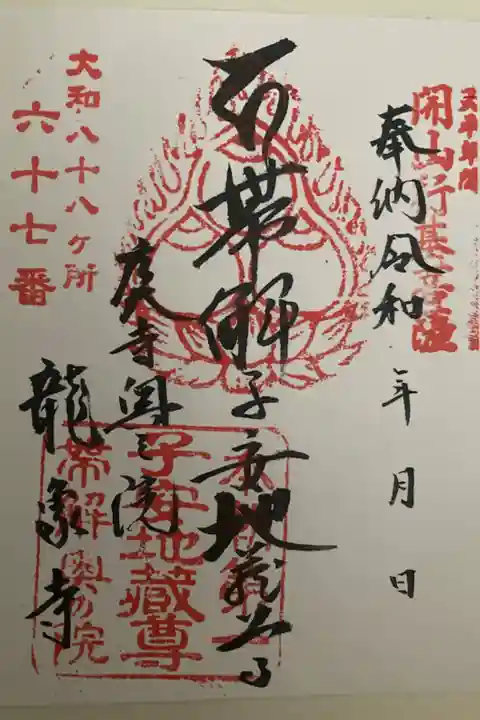 天平年間
開山行基菩薩
奉納令和 年 月 日
帯解子安地蔵尊
寺奥之院
龍象寺
大和八十八ヶ所
六十七番
第一
子安地蔵尊
帯解奥の院